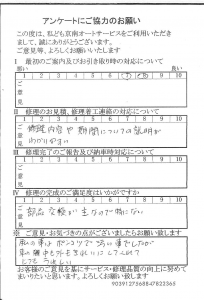 アンケートにご協力のお願い
この度は、私ども京南オートサービスをご利用いただき
まして、誠にありがとうございます。
ご意見等、よろしくお願いいたします
Ⅰ 最初のご案内及びお引き取り時の対応について
悪い 良い
1 2 3 4 5 6 7 8 9 10
ご意見
Ⅱ 修理のお見積、修理着工連絡の対応について
1 2 3 4 5 6 7 8 9 10
ご意見
修理内容や期間についての説明が
わかりやすい
Ⅲ 修理完了のご報告及び納車時対応について
1 2 3 4 5 6 7 8 9 10
ご意見
Ⅳ 修理の完成のご満足度はいかがですか
1 2 3 4 5 6 7 8 9 10
ご意見
部品交換が主なので特にない
※ ご意見・お気づきの点がございましたらお願い致します
お客様のご意見を基にサービス・修理品質の向上に努めて
まいりたいと思います。よろしくお願い致します。